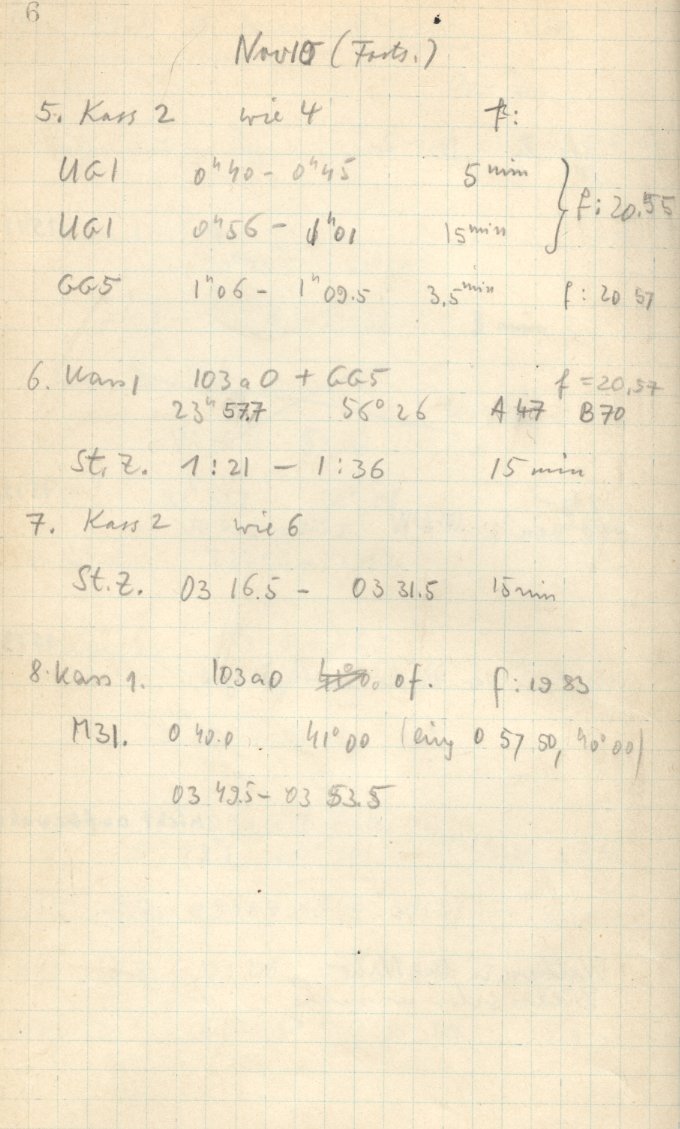 6
Nov 10 (Forts.)
5. Kass 2 wie 4 f:
UG1 0ʰ40 - 0ʰ45 5 min
UG1 0ʰ56 - 1ʰ01 15 min } f: 20.55
GG5 1ʰ06 - 1ʰ09.5 3,5 min f: 20 57
6. Kass 1 103aO + GG5 f = 20,57
23ʰ 57.7 56° 26 A 47 B 70
St. Z. 1:21 - 1:36 15 min
7. Kass 2 wie 6
St. Z. 03 16.5 - 03 31.5 15 min
8. Kass 1. 103aO of. f: 19 83
M31. 0 40.0 41° 00 (eing 0 57 50, 40° 00)
03 49.5 - 03 53.5